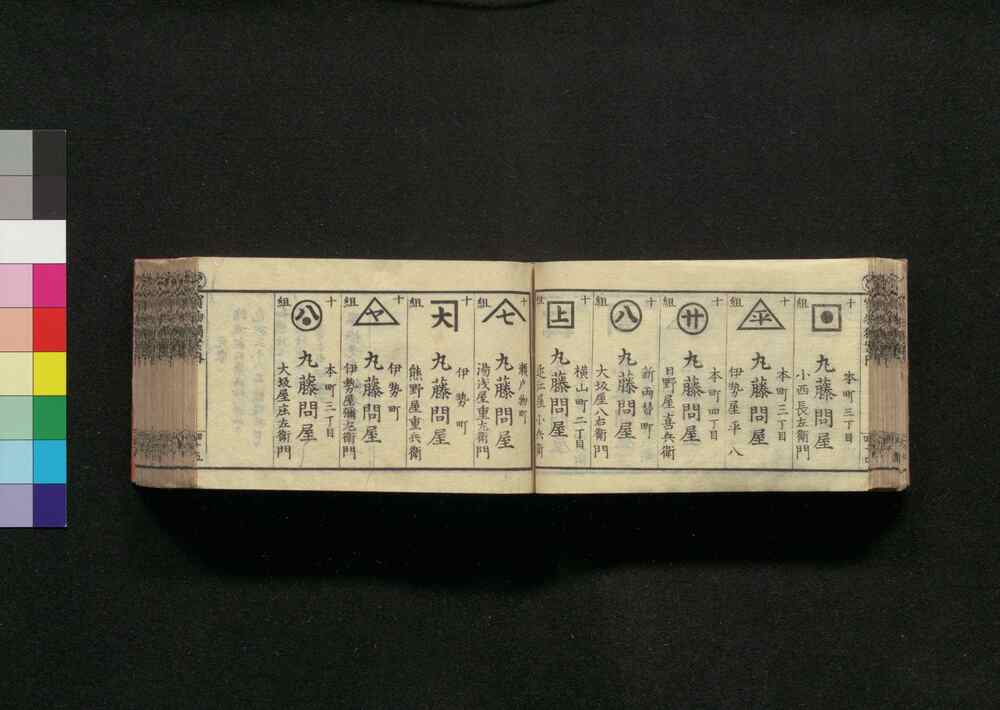 十組
本町三丁目
丸藤問屋
小西長左衛門
十組
平
本町三丁目
丸藤問屋
伊勢屋平八
十組
廿
本町四丁目
丸藤問屋
日野屋喜兵衛
十組
八
新両替町
丸藤問屋
大坂屋八右衛門
十組
上
横山町二丁目
丸藤問屋
近江屋小兵衛
十組
七
瀬戸物町
丸藤問屋
湯浅屋重左衛門
十組
大
伊勢町
丸藤問屋
熊野屋重兵衛
十組
ヤ
伊勢町
丸藤問屋
伊勢屋彌兵衛門
十組
八
本町三丁目
丸藤問屋
大坂屋庄左衛門